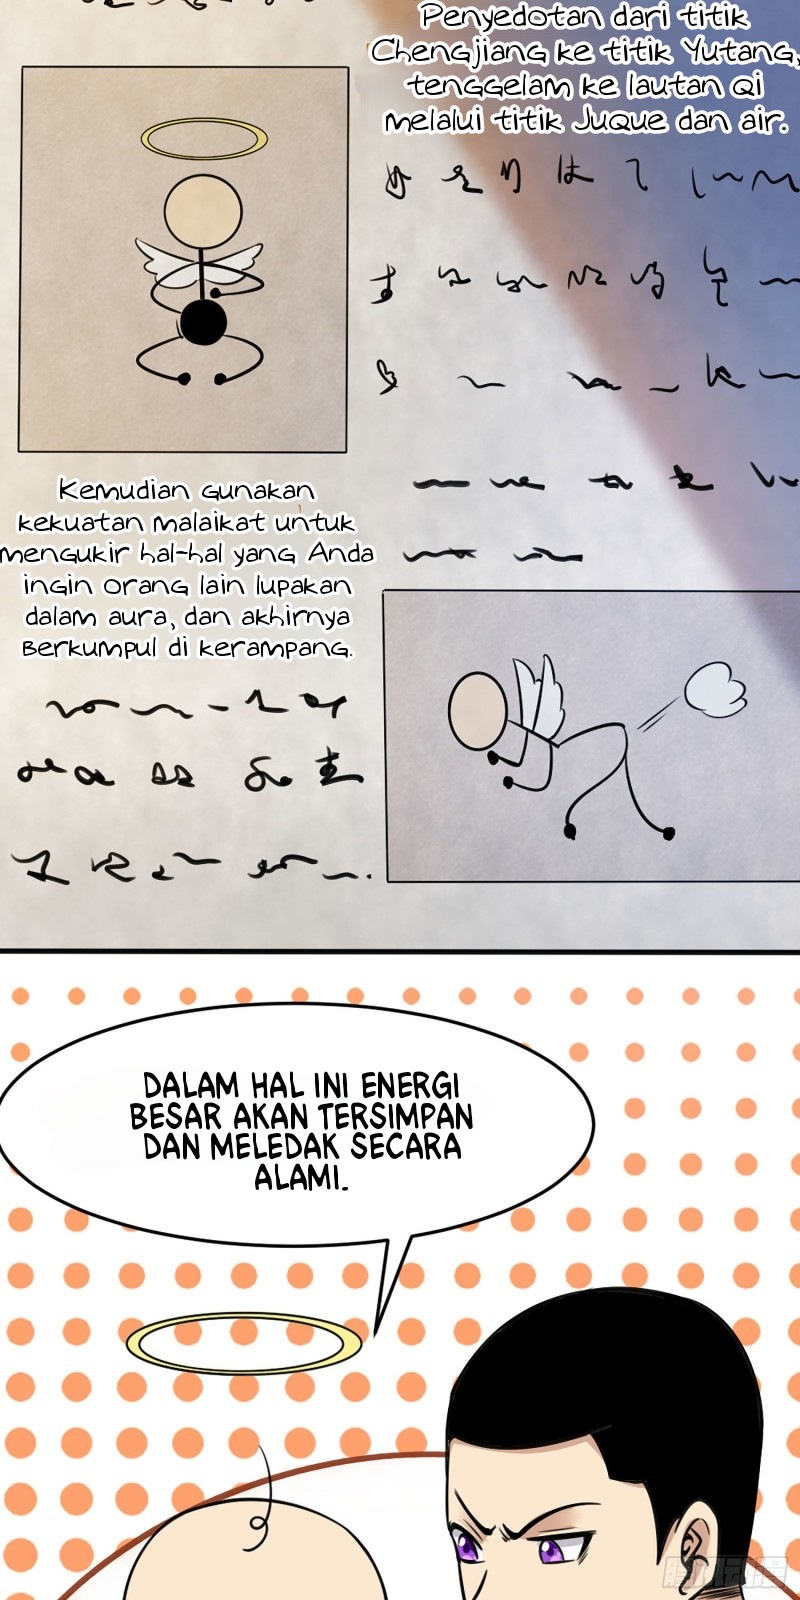 Penyedotan dari titik
Chengjiang ke titik Yutang,
tenggelam ke lautan Qi
melalui titik Juque dan air.
Kemudian gunakan
kekuatan malaikat untuk
mengukir hal-hal yang Anda
ingin orang lain lupakan
dalam aura, dan akhirnya
berkumpul di kerampang.
DALAM HAL INI ENERGI
BESAR AKAN TERSIMPAN
DAN MELEDAK SECARA
ALAMI.